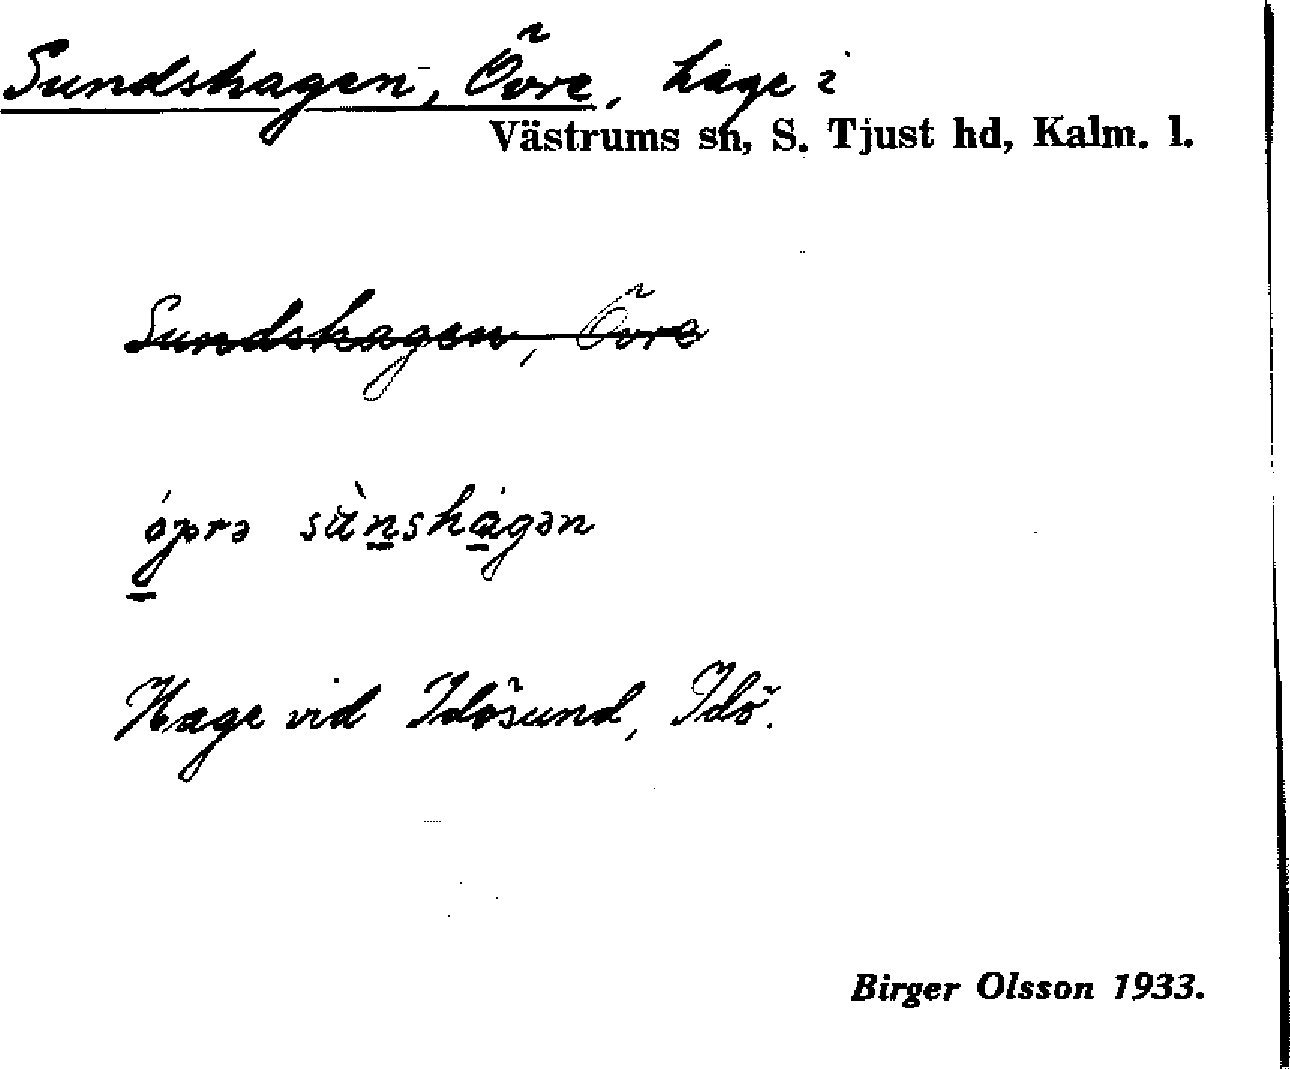 Sundshagen, Övre, hage i
Västrums sn, S. Tjust hd, Kalm. l.
Sundshagen, Övre
Hage vid Idösund, Idö.
Birger Olsson 1933.